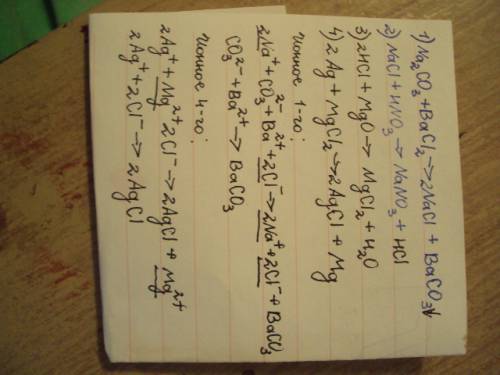 1) Na₂CO₃ + BaCl₂ → 2NaCl + BaCO₃↓
2) NaCl + HNO₃ → NaNO₃ + HCl
3) 2HCl + MgO → MgCl₂ + H₂O
4) 2Ag + MgCl₂ → 2AgCl + Mg
Ионное 1-го:
2Na⁺ + CO₃²⁻ + Ba²⁺ + 2Cl⁻ → 2Na⁺ + 2Cl⁻ + BaCO₃
CO₃²⁻ + Ba²⁺ → BaCO₃
Ионное 4-го:
2Ag⁺ + Mg²⁺ 2Cl⁻ → 2AgCl + Mg²⁺
2Ag⁺ + 2Cl⁻ → 2AgCl